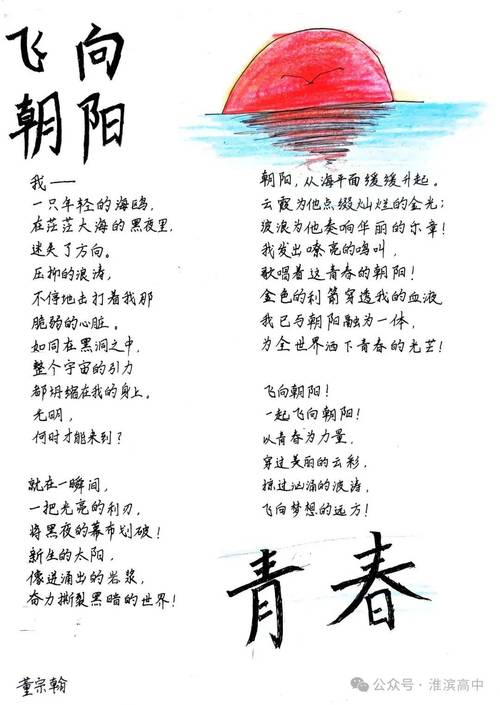 飞向
朝阳
我——
一只年轻的海鸥，
在茫茫大海的黑夜里，
迷失了方向。
压抑的浪涛，
不停地击打着我那
脆弱的心脏。
如同在黑洞之中，
整个宇宙的引力
都坍缩在我的身上。
光明，
何时才能来到？
就在一瞬间，
一把光亮的利刃，
将黑夜的幕布划破！
新生的太阳，
像迸涌出的岩浆，
奋力撕裂黑暗的世界！
朝阳，从海平面缓缓升起。
云霞为他点缀灿烂的金光；
波浪为他奏响华丽的乐章！
我发出嘹亮的鸣叫，
歌唱着这青春的朝阳！
金色的利箭穿透我的血液
我已与朝阳融为一体，
为全世界洒下青春的光芒！
飞向朝阳！
一起飞向朝阳！
以青春为力量，
穿过美丽的云彩，
掠过汹涌的波涛，
飞向梦想的远方！
青春
董宗翰
公众号·淮滨高中